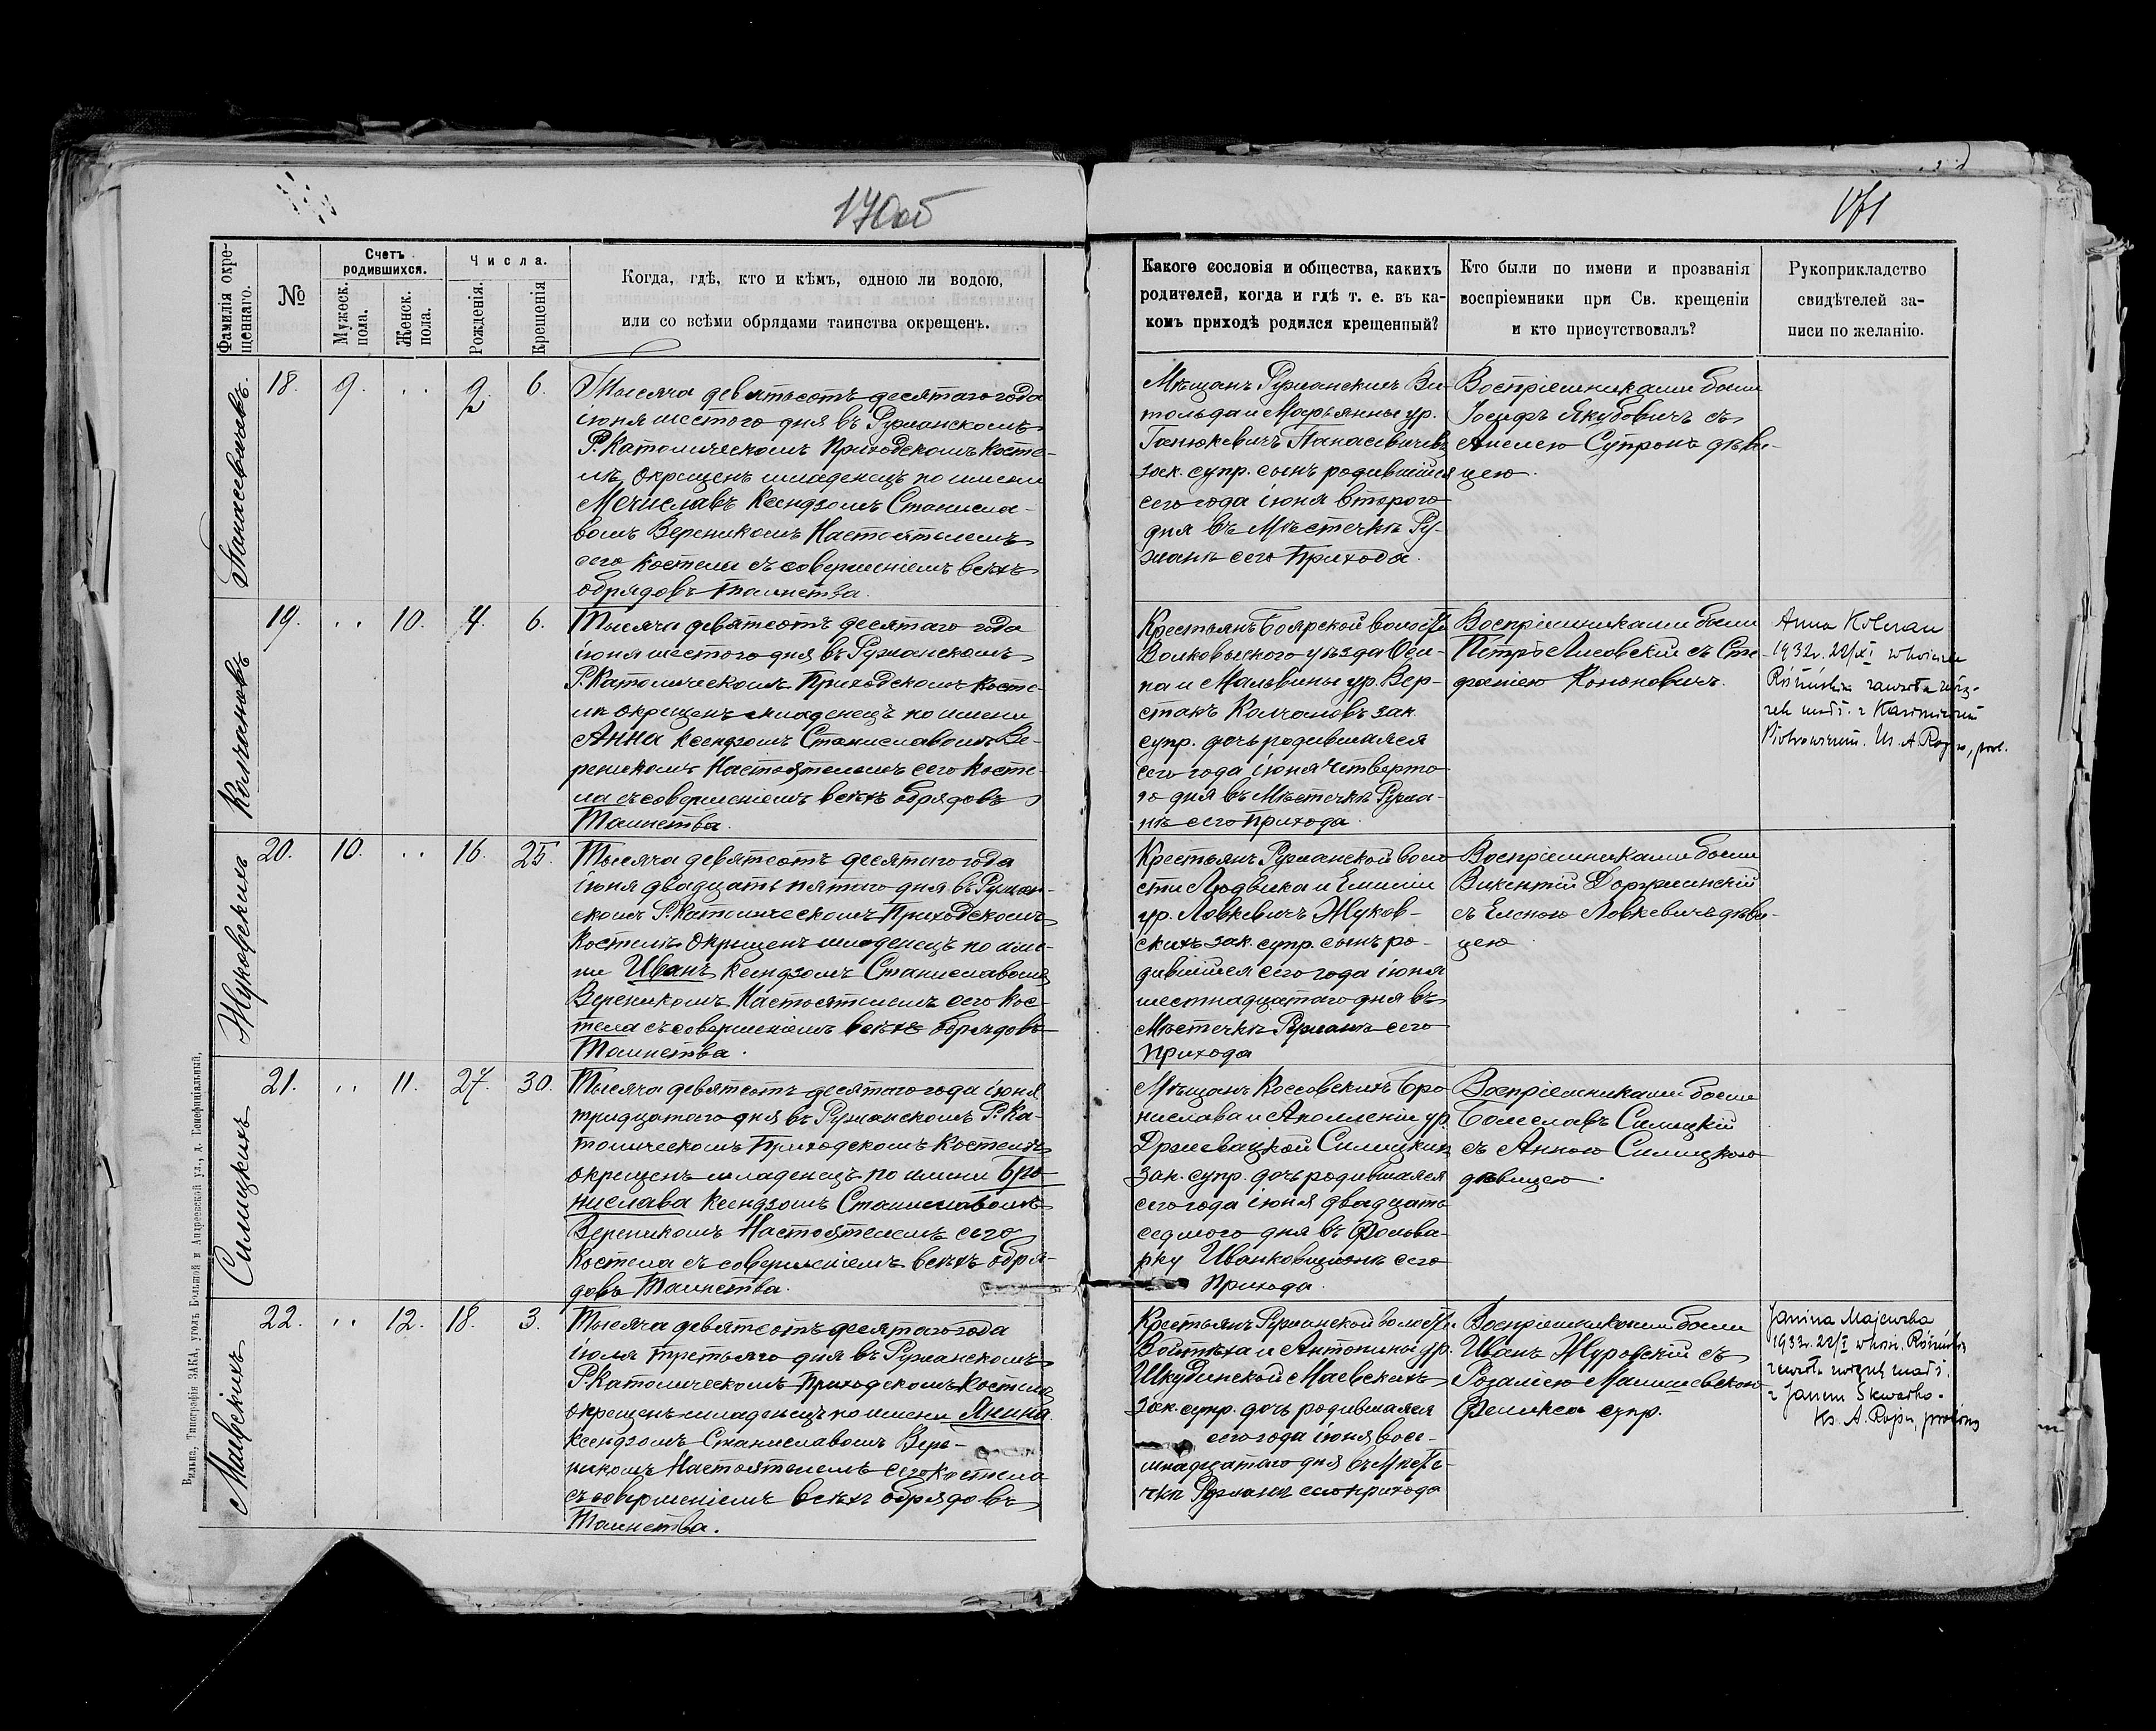 170об
171
Фамилія окре-
щеннаго.
№
Счетъ
родившихся.
Мужеск.
пола.
Женск.
пола.
Числа.
Рожденія.
Крещенія
Когда, гдѣ, кто и кѣмъ, одною ли водою,
или со всѣми обрядами таинства окрещенъ.
Какого сословія и общества, какихъ
родителей, когда и гдѣ т. е. въ ка-
комъ приходѣ родился крещенный?
Кто были по имени и прозванія
воспріемники при Св. крещеніи
и кто присутствовалъ?
Рукоприкладство
свидѣтелей за-
писи по желанію.
Панасевичевъ.
18. 9. .. 2 6.
Тысяча девятьсотъ десятаго года
іюня шестого дня въ Ружанскомъ
Р. Католическомъ Приходскомъ Косте-
лѣ окрещенъ младенецъ по имени
Мечиславъ Ксендзомъ Станисла-
вомъ Вереникомъ Настоятелемъ
сего Костела съ совершеніемъ всѣхъ
обрядовъ Таинства.
Мѣщанъ Ружанскихъ Ви-
тольда и Марьянны ур.
Ганюкевичъ Панасевичевъ
зак. супр. сынъ родившійся
сего года іюня второго
дня въ Мѣстечкѣ Ру-
жанѣ сего Прихода.
Воспріемниками были
Іосифъ Якубовичъ съ
Анелею Супронъ дѣви-
цею.
Колчановъ
19. .. 10. 4. 6.
Тысяча девятсотъ десятаго года
іюня шестого дня въ Ружанскомъ
Р. Католическомъ Приходскомъ Косте-
лѣ окрещенъ младенецъ по имени
Анна Ксендзомъ Станиславомъ Ве-
реникомъ Настоятелемъ сего Косте-
ла съ совершеніемъ всѣхъ обрядовъ
Таинства.
Крестьянъ Боярской волости
Волковыского уѣзда Оси-
па и Мальвины ур. Вер-
стакъ Колчановъ зак.
супр. дочь родившаяся
сего года іюня четверто
го дня въ Мѣстечкѣ Ружа-
нѣ сего Прихода.
Воспріемниками были
Петръ Лисовскій съ Сте-
фаніею Кононовичъ.
Anna
1932r. 22/XI w kościele
Różańskim zawarła zwią-
zek małż. z Kazimierzem
Piotrowiczem. Ks. A. , prob.
Жуковскихъ
20. 10. .. 16. 25.
Тысяча девятсотъ десятаго года
іюня двадцать пятаго дня въ Ружан-
скомъ Р. Католическомъ Приходскомъ
Костелѣ окрещенъ младенецъ по име-
ни Иванъ Ксендзомъ Станиславомъ
Вереникомъ Настоятелемъ сего Кос-
тела съ совершеніемъ всѣхъ обрядовъ
Таинства.
Крестьянъ Ружанской воло
сти Людвика и Емиліи
ур. Ловкевичъ Жуков-
скихъ зак. супр. сынъ ро-
дившійся сего года іюня
шестнадцатаго дня въ
Мѣстечкѣ Ружанѣ сего
Прихода
Воспріемниками были
Викентій Доржинскій
съ Еленою Ловкевичъ дѣви-
цею
Силицкихъ
21. .. 11. 27. 30.
Тысяча девятсотъ десятаго года іюня
тридцатаго дня въ Ружанскомъ Р. Ка-
толическомъ Приходскомъ Костелѣ
окрещенъ младенецъ по имени Бро-
нислава Ксендзомъ Станиславомъ
Вереникомъ Настоятелемъ сего
Костела съ совершеніемъ всѣхъ обря-
довъ Таинства.
Мѣщанъ Коссовскихъ Бро
нислава и Аполлоніи ур.
Силицкихъ
зак. супр. дочь родившаяся
сего года іюня двадцать
седмого дня въ Фольва-
рку Иванковщизнѣ сего
Прихода.
Воспріемниками были
Болеславъ Силицкій
съ Анною Силицкою
дѣвицею.
Маевскихъ
22. .. 12. 18. 3.
Тысяча девятсотъ десятаго года
іюля третьяго дня въ Ружанскомъ
Р. Католическомъ Приходскомъ Костелѣ
окрещенъ младенецъ по имени Янина
Ксендзомъ Станиславомъ Вере-
никомъ Настоятелемъ сего Костела
съ совершеніемъ всѣхъ обрядовъ
Таинства.
Крестьянъ Ружанской волости
Войтѣха и Антонины ур.
Шкудинской Маевскихъ
зак. супр. дочь родившаяся
сего года іюня восе-
мнадцатаго дня въ Мѣсте-
чкѣ Ружанѣ сего прихода
Воспріемниками были
Иванъ Журовскій съ
Розаліею Малишевскою
Феликса супр.
Janina Majewska
1932r. 22/I w kośc. Różańsk.
zawarła związek małż.
z Janem
Ks. A. , proboszcz
Вильна, Типографія ЗАКА, уголъ Большой и Андреевской ул., д. Бенефиціальный.